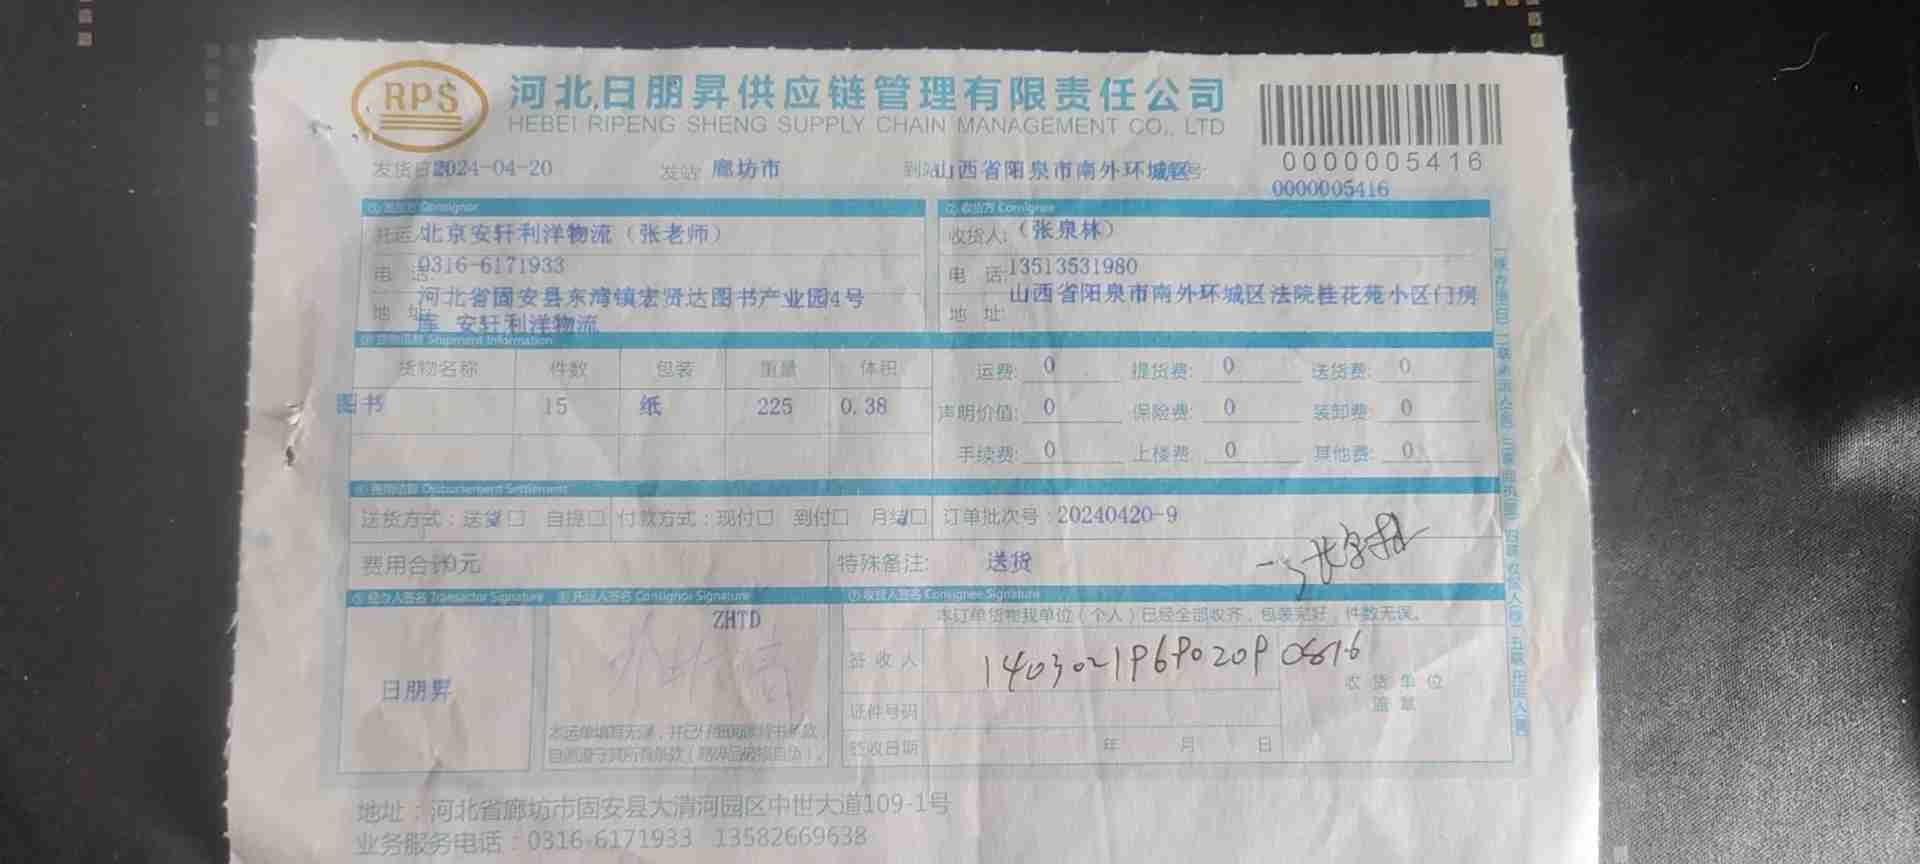 RPS
河北日朋昇供应链管理有限责任公司
HEBEI RIPENG SHENG SUPPLY CHAIN MANAGEMENT CO., LTD
0000005416
0000005416
发货日期 2024-04-20 发站 廊坊市 到站 山西省阳泉市南外环城区
① 发货方 Consignor ② 收货方 Consignee
托运人 北京安轩利洋物流（张老师） 收货人:（张泉林）
电 话 0316-6171933 电 话: 13513531980
地 址 河北省固安县东湾镇宏贤达图书产业园4号库 安轩利洋物流
地 址: 山西省阳泉市南外环城区法院桂花苑小区门房
Shipment Information
货物名称 件数 包装 重量 体积
图书 15 纸 225 0.38
运费: 0 提货费: 0 送货费: 0
声明价值: 0 保险费: 0 装卸费: 0
手续费: 0 上楼费: 0 其他费: 0
Disbursement Settlement
送货方式：送货□ 自提□ 付款方式：现付□ 到付□ 月结□ 订单批次号：20240420-9
费用合计0元 特殊备注: 送货
⑤ 经办人签名 Transactor Signature ⑥ 托运人签名 Consignor Signature ⑦ 收货人签名 Consignee Signature
ZHTD
本订单货物我单位（个人）已经全部收齐，包装完好，件数无误。
日朋昇
签收人 140302196902090816
收货单位
盖章
证件号码
签收日期 年 月 日
地址：河北省廊坊市固安县大清河园区中世大道109-1号
业务服务电话：0316-6171933 13582669638